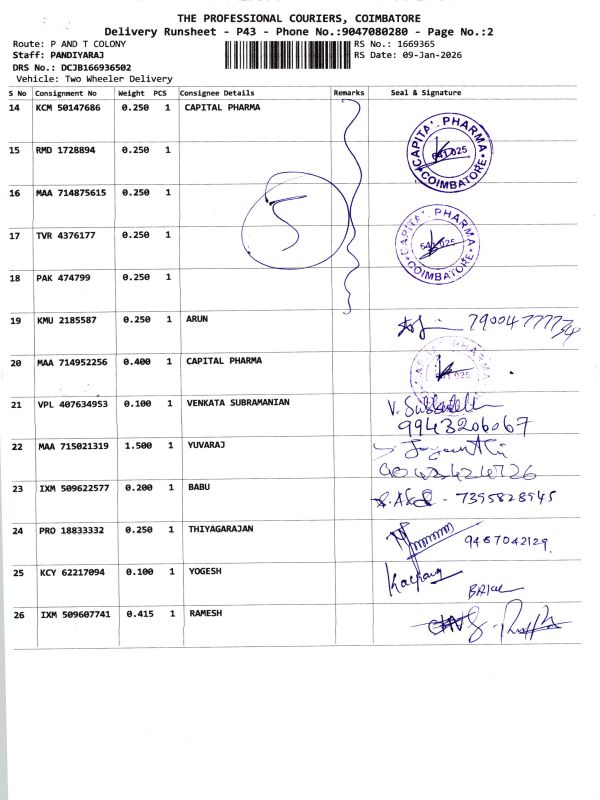 THE PROFESSIONAL COURIERS, COIMBATORE
Delivery Runsheet - P43 - Phone No.:9047080280 - Page No.:2
Route: P AND T COLONY
RS No.: 1669365
Staff: PANDIYARAJ
RS Date: 09-Jan-2026
DRS No.: DCJB166936502
Vehicle: Two Wheeler Delivery
S No Consignment No Weight PCS Consignee Details Remarks Seal & Signature
14 KCM 50147686 0.250 1 CAPITAL PHARMA
CAPITAL PHARMA 641 025 COIMBATORE
15 RMD 1728894 0.250 1
16 MAA 714875615 0.250 1
5
17 TVR 4376177 0.250 1
CAPITAL PHARMA 641 025 COIMBATORE
18 PAK 474799 0.250 1
19 KMU 2185587 0.250 1 ARUN
20 MAA 714952256 0.400 1 CAPITAL PHARMA
CAPITAL PHARMA 641 025
21 VPL 407634953 0.100 1 VENKATA SUBRAMANIAN
V.
9943206067
22 MAA 715021319 1.500 1 YUVARAJ
23 IXM 509622577 0.200 1 BABU
- 7395828945
24 PRO 18833332 0.250 1 THIYAGARAJAN
9487042129
25 KCY 62217094 0.100 1 YOGESH
26 IXM 509607741 0.415 1 RAMESH